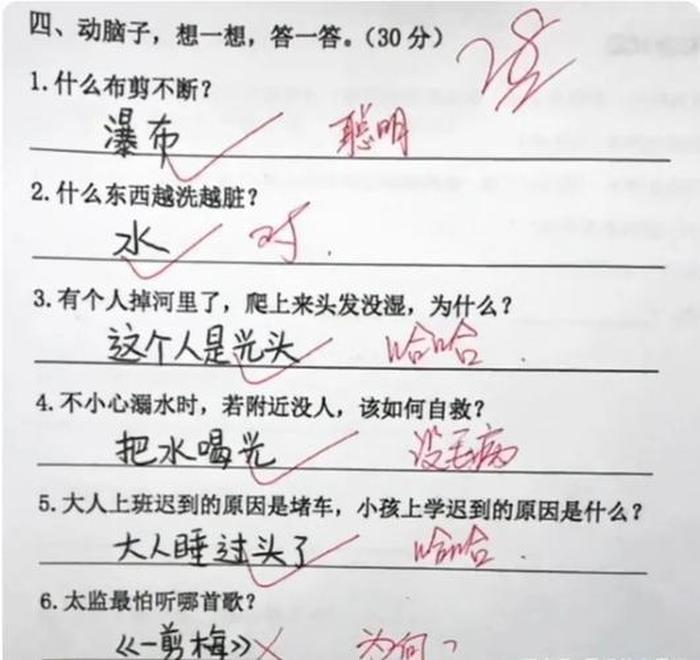 四、动脑子，想一想，答一答。（30分）
28
1.什么布剪不断？
瀑布 聪明
2.什么东西越洗越脏？
水 对.
3.有个人掉河里了，爬上来头发没湿，为什么？
这个人是光头 哈哈.
4.不小心溺水时，若附近没人，该如何自救？
把水喝光 没毛病
5.大人上班迟到的原因是堵车，小孩上学迟到的原因是什么？
大人睡过头了 哈哈.
6.太监最怕听哪首歌？
《一剪梅》 为何？